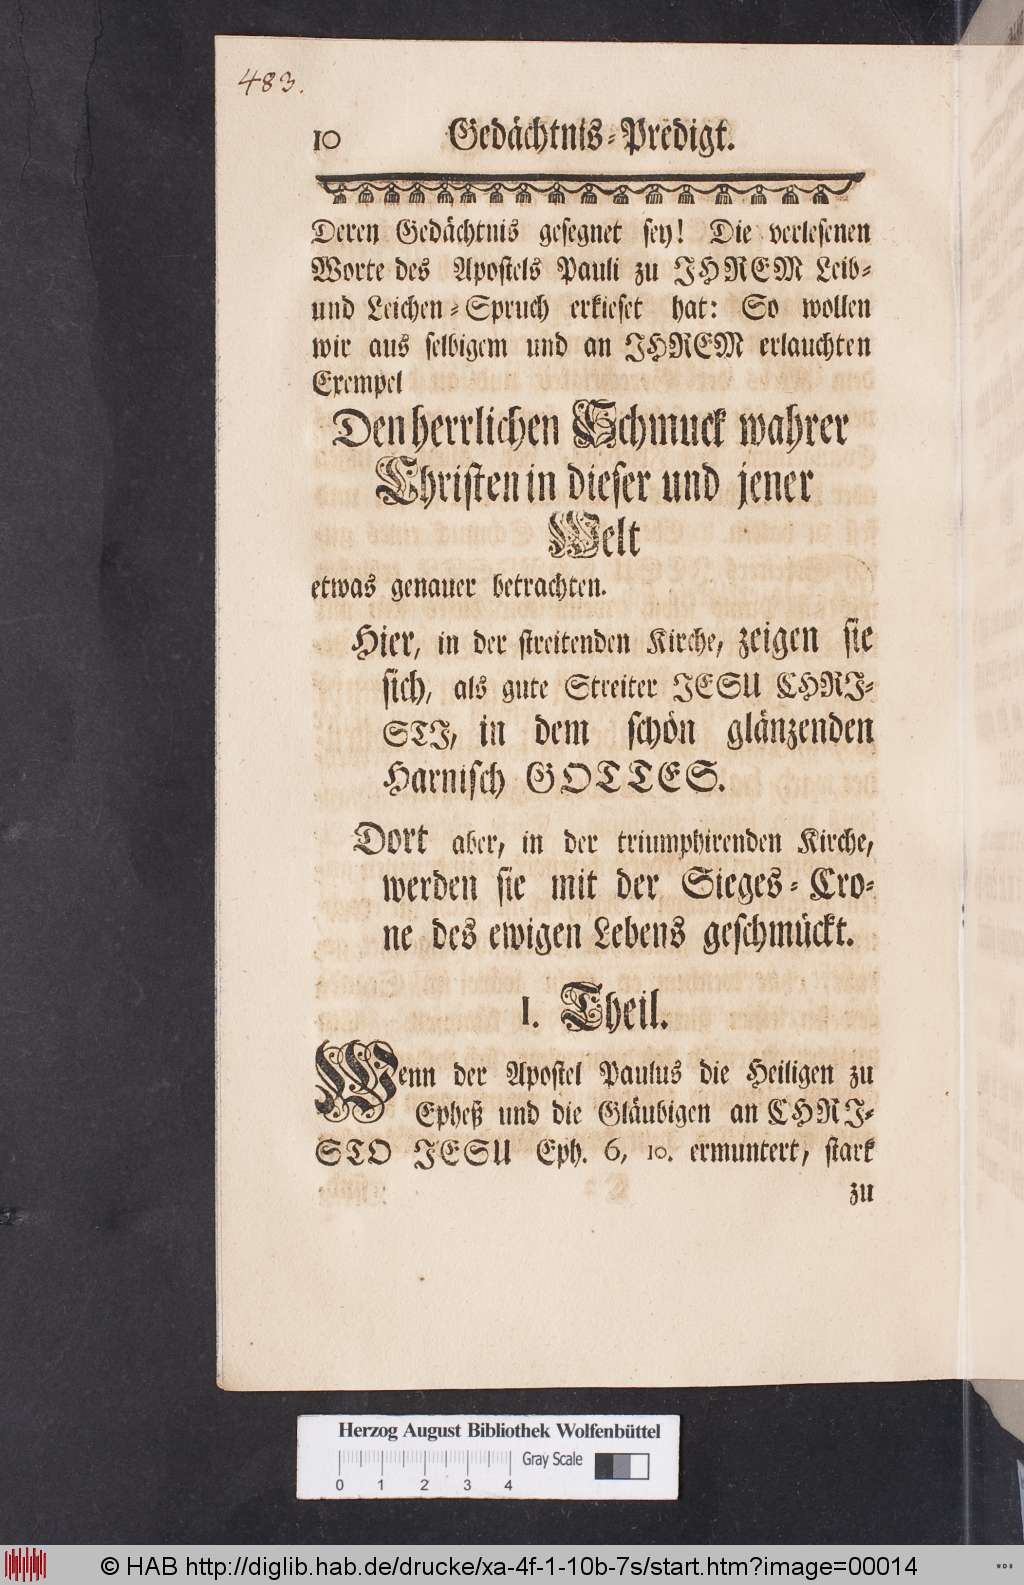 483.
10 Gedächtnis-Predigt.
Deren Gedächtnis gesegnet sey! Die verlesenen
Worte des Apostels Pauli zu JHREM Leib-
und Leichen-Spruch erkieset hat: So wollen
wir aus selbigem und an JHREM erlauchten
Exempel
Den herrlichen Schmuck wahrer
Christen in dieser und jener
Welt
etwas genauer betrachten.
Hier, in der streitenden Kirche, zeigen sie
sich, als gute Streiter JESU CHRJ-
STJ, in dem schön glänzenden
Harnisch GOTTES.
Dort aber, in der triumphirenden Kirche,
werden sie mit der Sieges-Cro-
ne des ewigen Lebens geschmückt.
I. Theil.
Wenn der Apostel Paulus die Heiligen zu
Epheß und die Gläubigen an CHRJ-
STO JESU Eph. 6, 10. ermuntert, stark
zu
Herzog August Bibliothek Wolfenbüttel
Gray Scale
0 1 2 3 4
© HAB http://diglib.hab.de/drucke/xa-4f-1-10b-7s/start.htm?image=00014